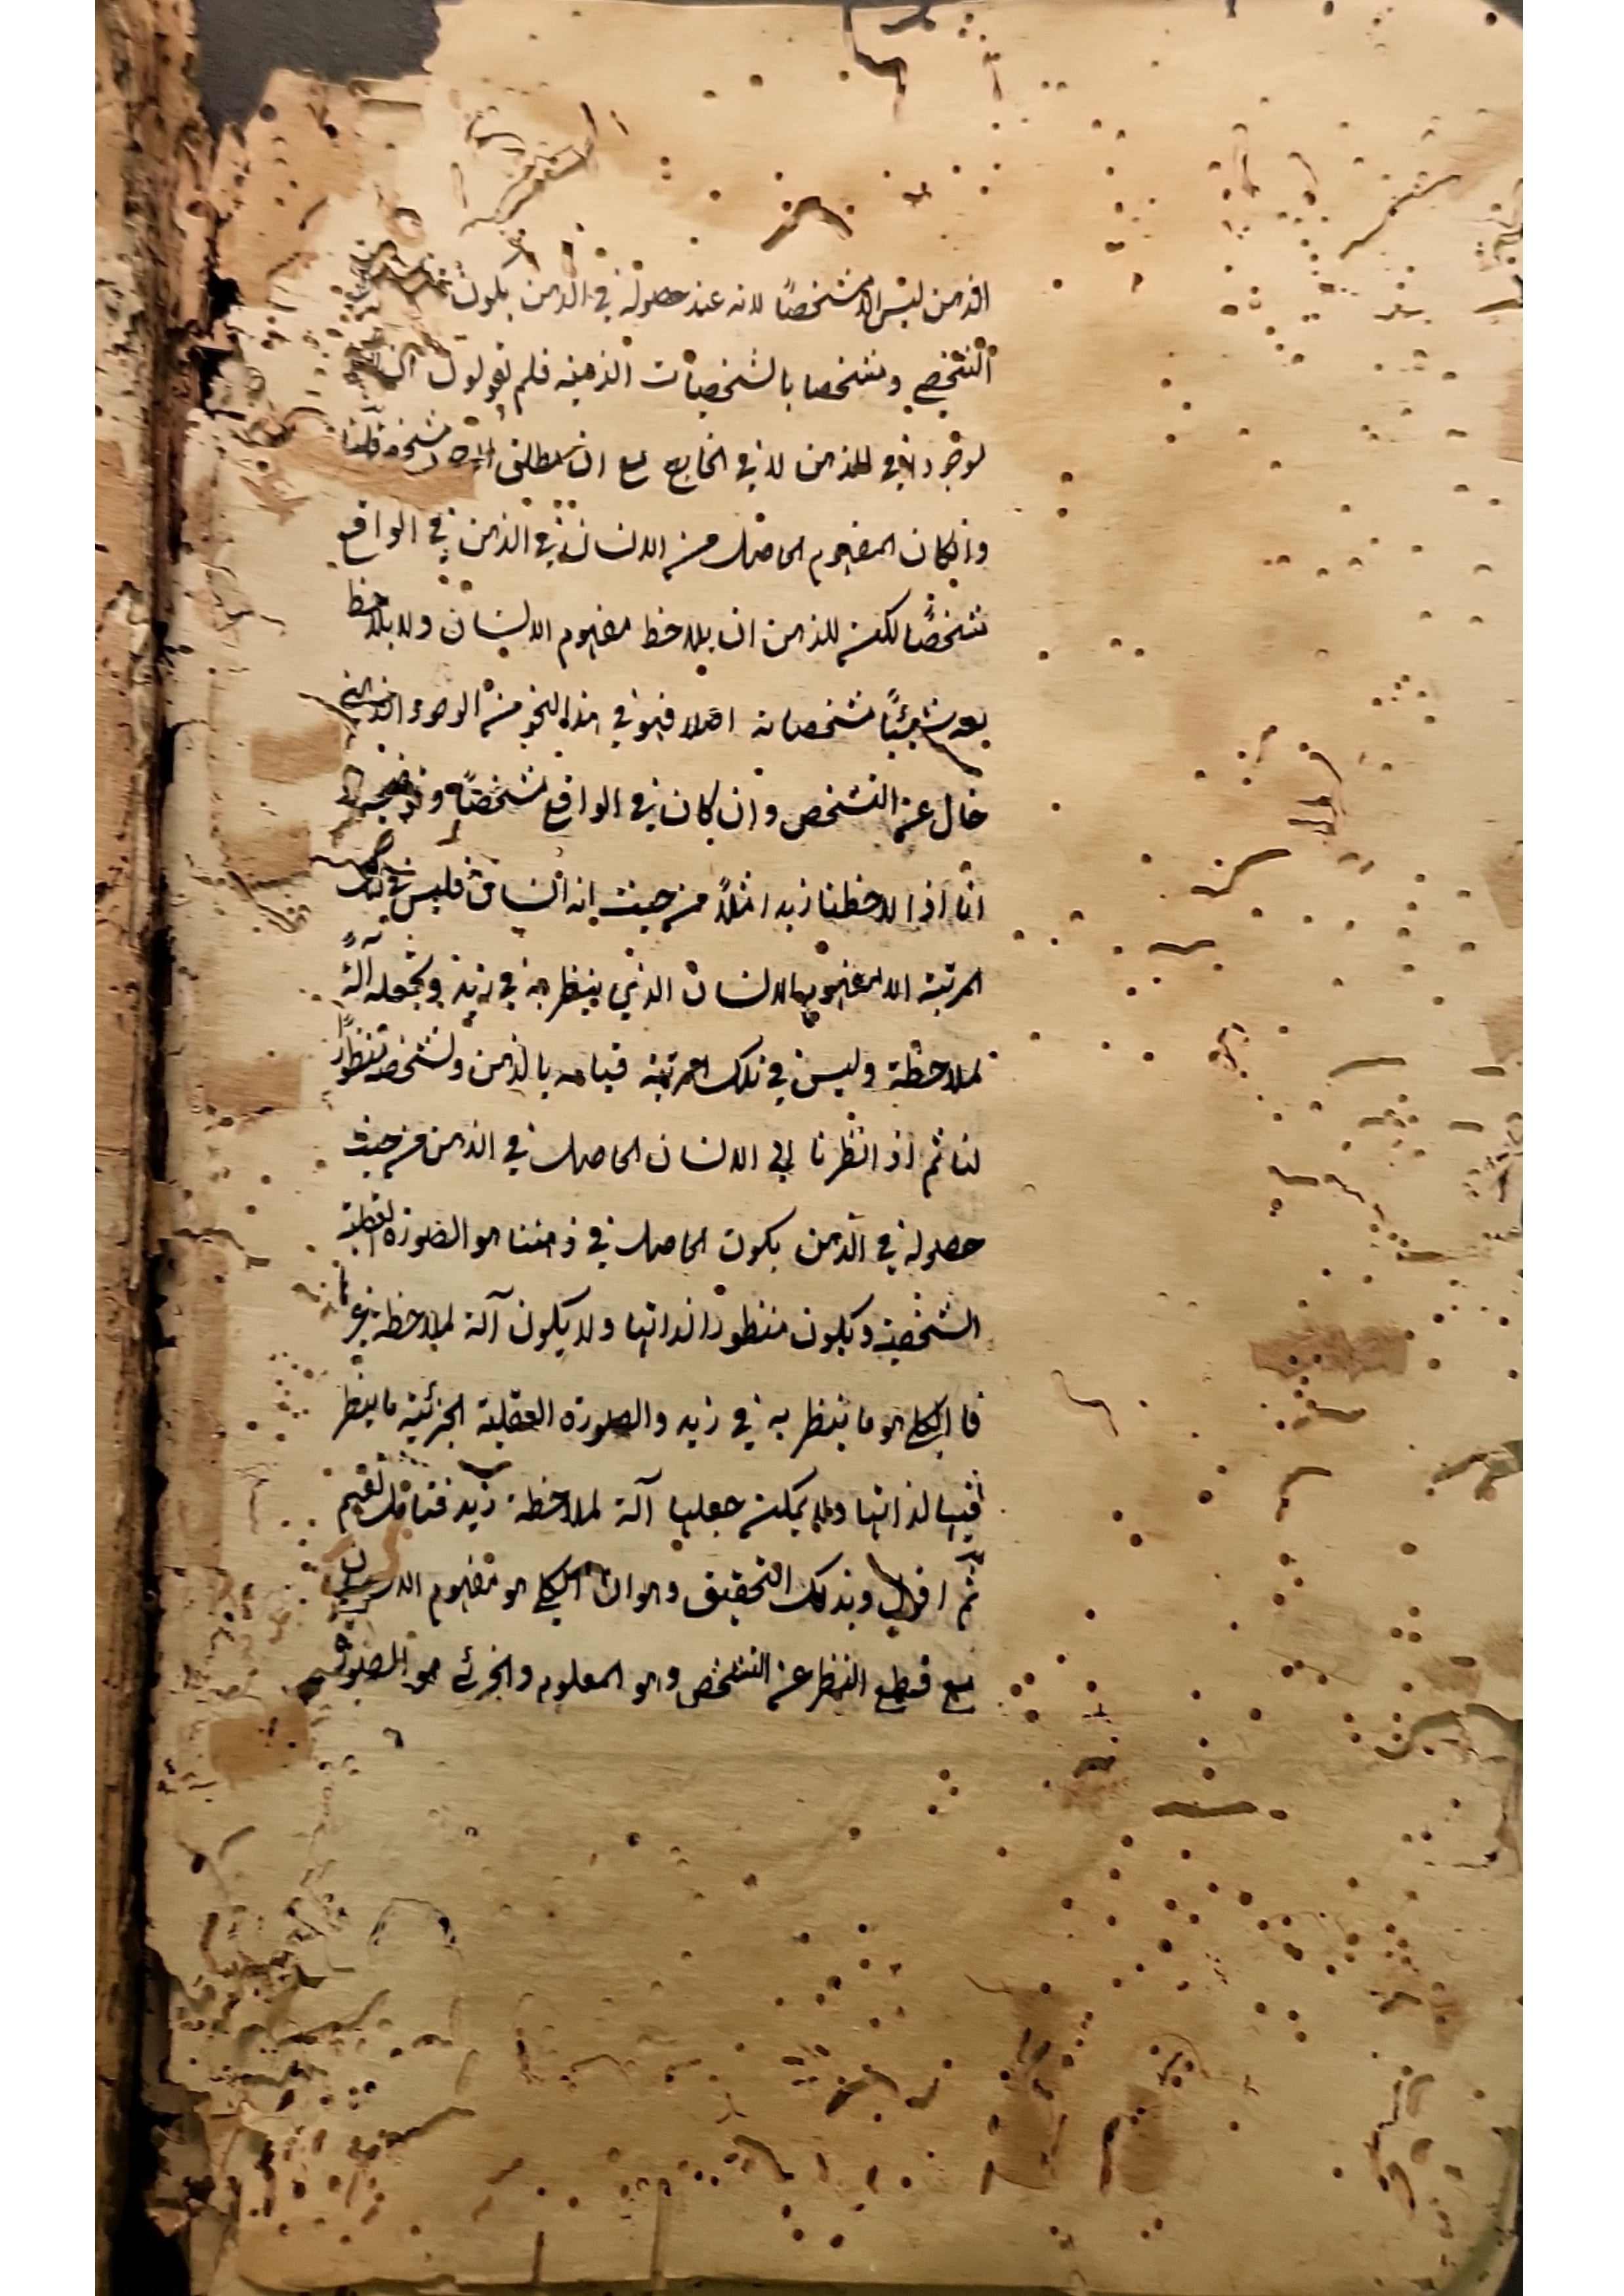 الذهن ليس الا مشخصًا لانه عند حصوله في الذهن يكون
التشخص ومتشخصا بالشخصيات الذهنيه فلم يقولون ان
موجود في الذهن لا في الخارج مع ان المطلق مشخص قلنا
وان كان المفهوم الحاصل من الانسان في الذهن في الواقع
متشخصًا لكن للذهن ان يلاحظ مفهوم الانسان ولا يلاحظ
بعد شيئًا مشخصاته اصلا فهو في هذا النحو من الوجود الذهني
خال عن التشخص وان كان في الواقع مشخصًا
انا اذا لاحظنا زيدا مثلاً من حيث انه انسان فليس في تلك
المرتبة الا مفهوم الانسان الذي ينظر به في زيد ويجعله آلةً
لملاحظة وليس في تلك المرتبة قيامه بالذهن وتشخصه منظورًا
لنا ثم اذا نظرنا الى الانسان الحاصل في الذهن من حيث
حصوله في الذهن يكون الحاصل في ذهننا هو الصورة العقلية
الشخصية ويكون منظورا لذاتها ولا يكون آلة لملاحظة غيرها
فالكلي هو ما ينظر به في زيد والصورة العقلية الجزئية ما ينظر
فيها لذاتها ولا يمكن جعلها آلة لملاحظة زيد فتامل تفهم
ثم اقول وبذلك التحقيق وهو ان الكلي هو مفهوم الانسان
مع قطع النظر عن التشخص وهو المعلوم والجزئي هو الصورة